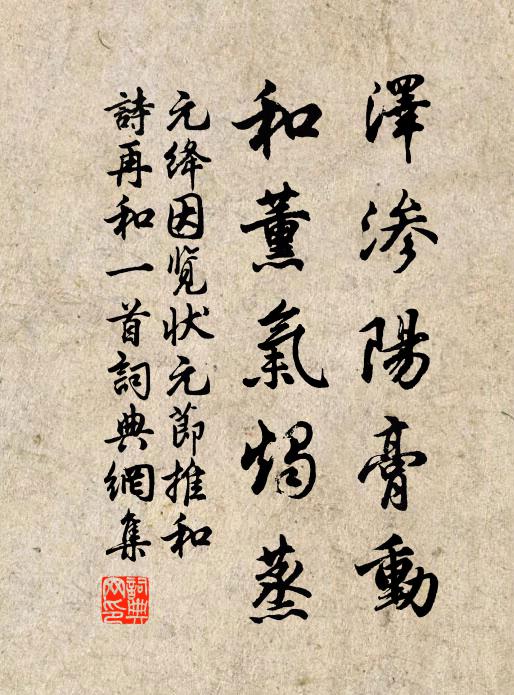 澤渗陽膏動
和薰氣燭蒸
元绛因览状元節推和
詩再和一首詞典網集
詞典网印